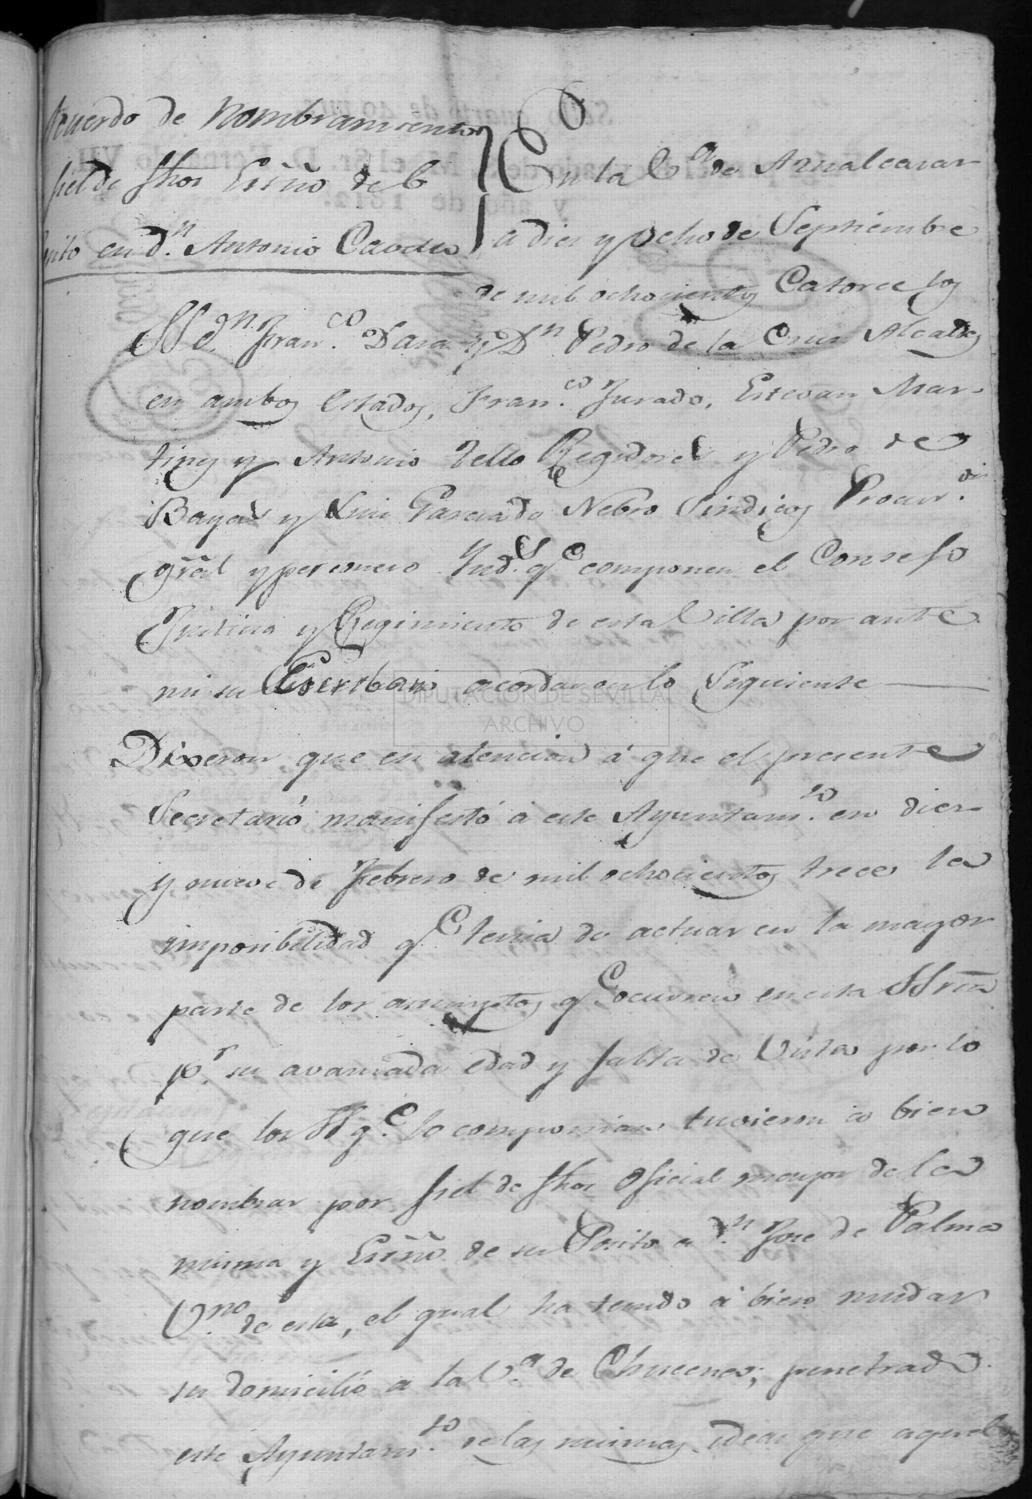 Acuerdo de Nombramiento
fiel de fhos Essno del
Posito en dn. Antonio
En la Va. de Aznalcazar
a diez y ocho de Septiembre
de mil ochocientos Catorce los
SS. dn. Franco. Daza y Dn Pedro de la Cruz Alcaldes
en ambos estados, Franco. Jurado, Estevan Mar-
tines y Antonio Tello Regidores y Pedro de
y Luis Nebro Sindicos Procurador
gral y personero Inds. qe componen el Consejo
Justicia y Regimiento de esta Villa por ante
mi su Escribano acordaron lo Siguiente
DIPUTACIÓN DE SEVILLA
ARCHIVO
Dixeron que en atencion á que el presente
Secretario manifestó á este Ayuntamto. en diez
y nueve de Febrero de mil ochocientos trece la
imposibilidad qe tenia de actuar en la mayor
parte de los asumptos qe ocurren en esta SSria
pr. su avanzada edad y falta de Vista por lo
que los SS qe. lo componian tuvieron á bien
nombrar por fiel de fhos Oficial mayor de la
misma y Essno. de su Posito a dn. Jose de Palma
Vno. de esta, el qual ha tenido á bien mudar
su domicilio a la Va. de Chucena; penetrado
este Ayuntamto. de las mismas ideas que aquel